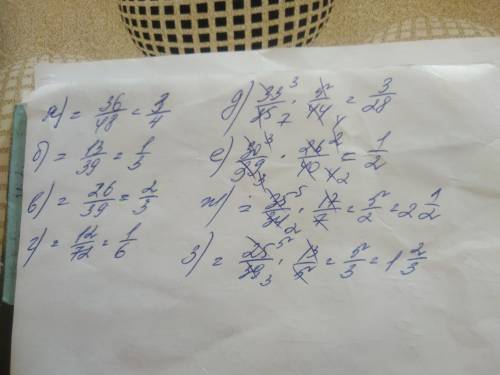 а) = 36/48 = 3/4
б) = 13/39 = 1/3
в) = 26/39 = 2/3
г) = 12/72 = 1/6
д) 33/35 · 5/44 = 3/28
е) 30/39 · 26/40 = 1/2
ж) = 35/34 · 17/7 = 5/2 = 2 1/2
з) = 25/39 · 13/5 = 5/3 = 1 2/3